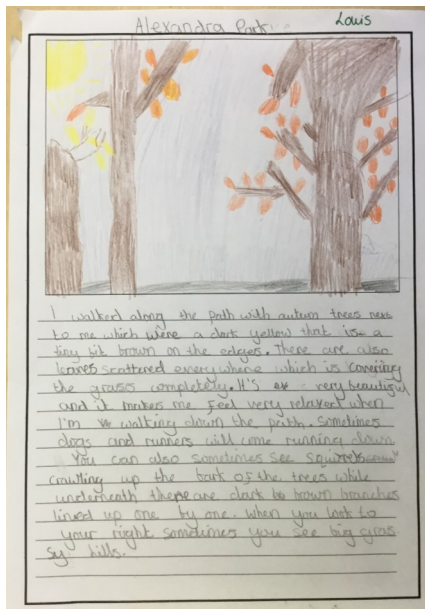 Alexandra Park
Louis
I walked along the path with autum trees next
to me which were a dark yellow that is a
tiny bit brown on the edges. There are also
leaves scattered everywhere which is covering
the grases completely. It's very beautiful
and it makes me feel very relaxed when
I'm walking down the path. Sometimes
dogs and runners will come running down
You can also sometimes see
crawling up the bark of the trees while
underneath there are dark brown branches
lined up one by one. When you look to
your right sometimes you see big gras
sy hills.